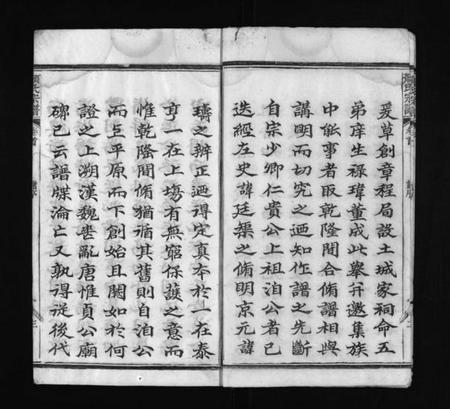 爰草創章程局設土城家祠命五
弟庠生祿瑋董成此舉并邀集族
中能事者取乾隆間合脩譜相與
講明而切究之迺知作譜之先斷
自宗少卿仁貴公上祖洎公者已
迭經左史諱廷榘之脩明京元諱
璹之辨正迺得定真夲於一在泰
亨一在上塲有無窮保護之意而
惟乾隆間脩猶循其舊則自洎公
而上平原而下創始且闕如於何
證之上溯漢魏丗亂唐惟貞公廟
碑已云譜牒淪亡又孰得從後代